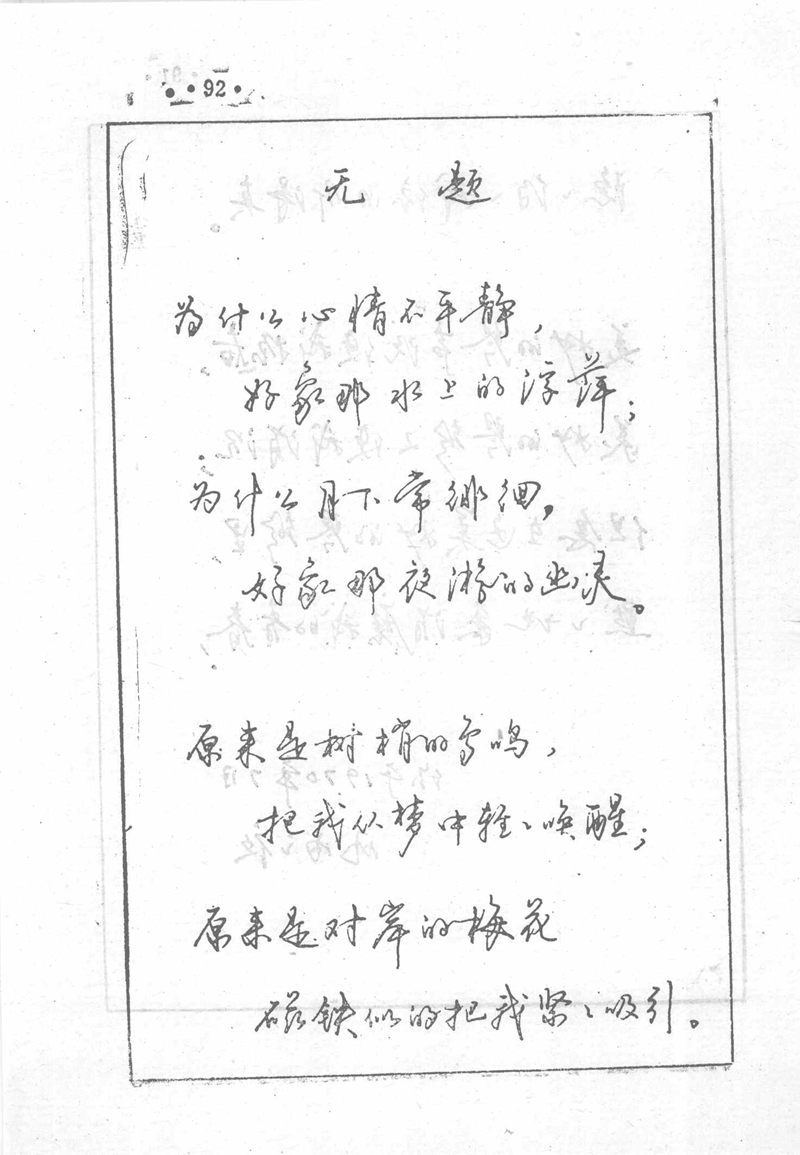 92
无题
为什么心情不平静，
好象那水上的浮萍；
为什么月下常徘徊，
好象那夜游的幽灵。
原来是树梢的鸟鸣，
把我从梦中轻轻唤醒；
原来是对岸的梅花
磁铁似的把我紧紧吸引。